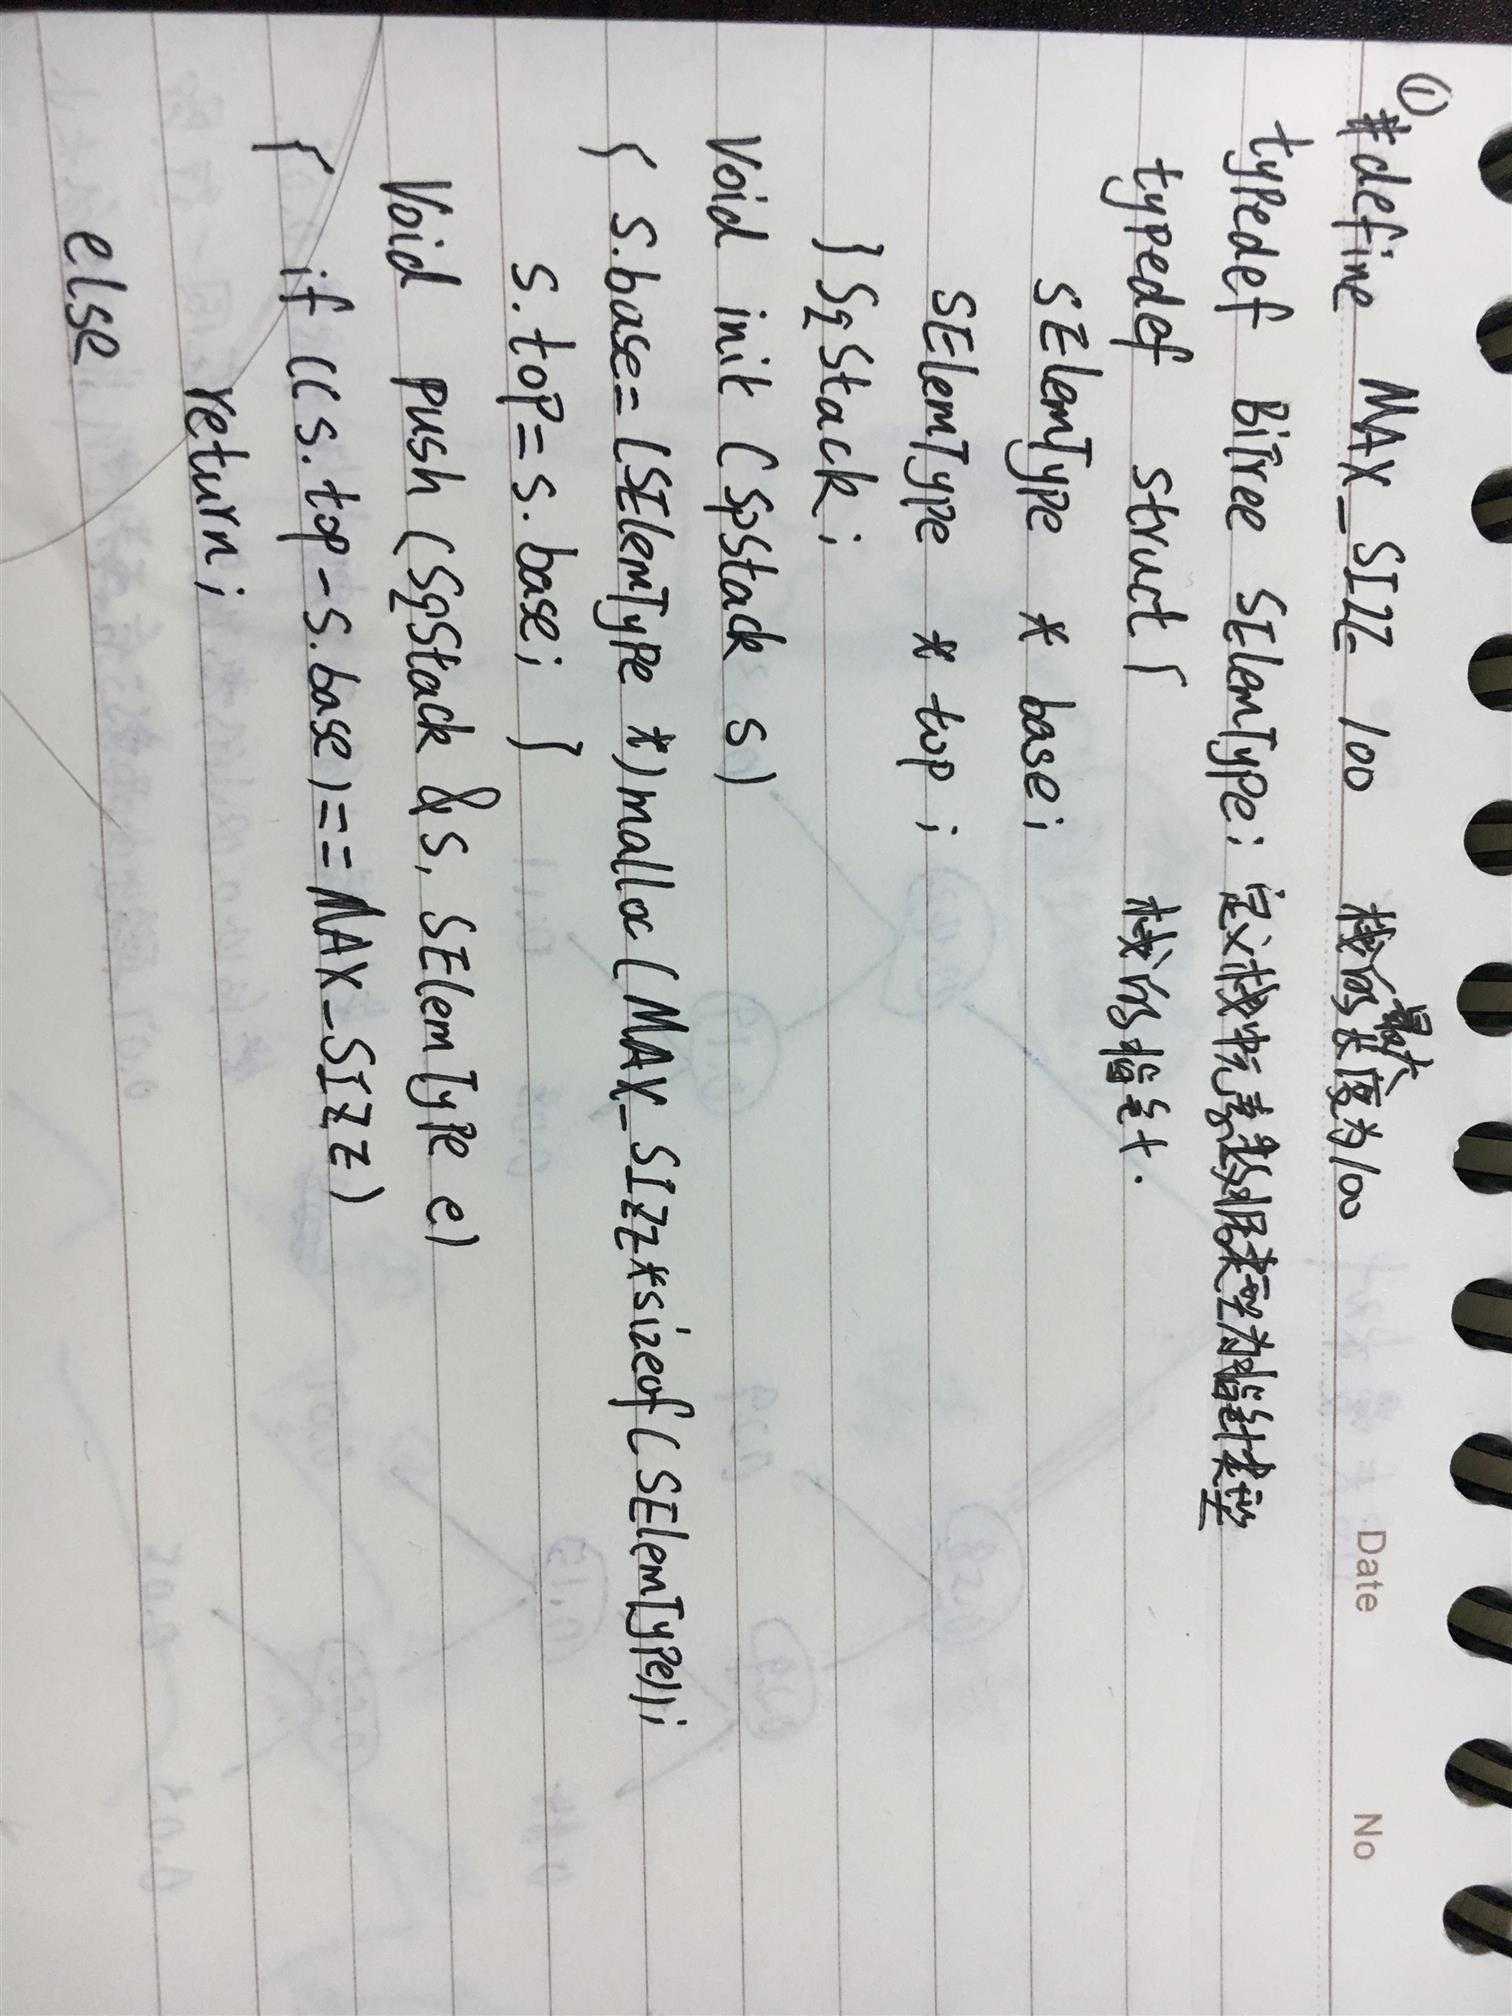 Date No
①
#define MAX_SIZZ 100 栈的最大长度为100
typedef BiTree SElemType; 定义栈中元素数据类型为指针类型
typedef struct { 栈的指针.
SElemType * base;
SElemType * top;
} SqStack;
Void init (SpStack s)
{ s.base=(SElemType *)malloc(MAX_SIZZ*sizeof(SElemType));
s.top=s.base; }
Void push (SqStack &s, SElemType e)
{ if ((s.top-s.base)==MAX_SIZZ)
return;
else